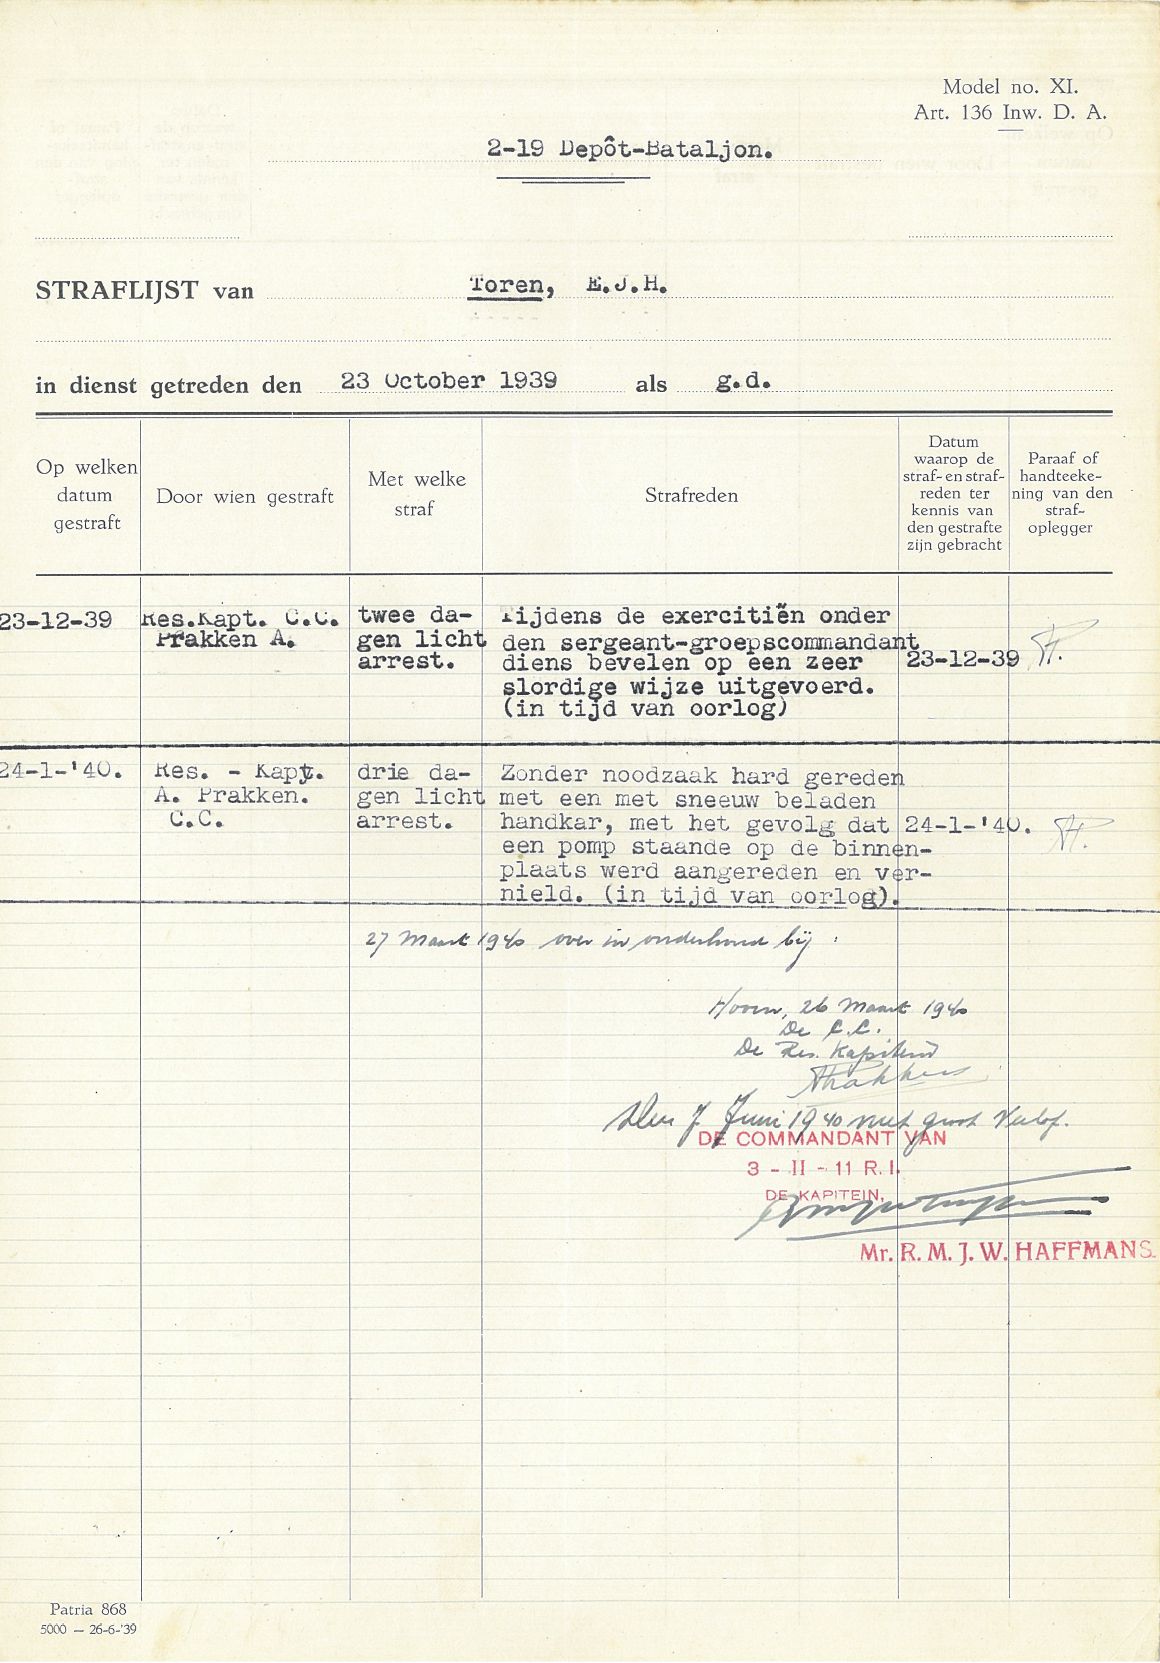 Model no. XI.
Art. 136 Inw. D. A.
2-19 Depôt-Bataljon.
STRAFLIJST van Toren, E.J.H.
in dienst getreden den 23 October 1939 als g.d.
Op welken datum gestraft
Door wien gestraft
Met welke straf
Strafreden
Datum
waarop de
straf- en straf-
reden ter
kennis van
den gestrafte
zijn gebracht
Paraaf of
handteeke-
ning van den
straf-
oplegger
23-12-39
Res.Kapt. C.C.
Prakken A.
twee da-
gen licht
arrest.
Tijdens de exercitiën onder
den sergeant-groepscommandant
diens bevelen op een zeer
slordige wijze uitgevoerd.
(in tijd van oorlog)
23-12-39
24-1-'40.
Res. - Kapt.
A. Prakken.
C.C.
drie da-
gen licht
arrest.
Zonder noodzaak hard gereden
met een met sneeuw beladen
handkar, met het gevolg dat
een pomp staande op de binnen-
plaats werd aangereden en ver-
nield. (in tijd van oorlog).
24-1-'40.
27 Maart 1940 over in onderhoud bij :
Hoorn, 26 Maart 1940
De C.C.
De Res. Kapitein
APrakken
Den 7 Juni 1940 met groot Verlof.
DE COMMANDANT VAN
3 - II - 11 R.I.
DE KAPITEIN,
Mr. R. M. J. W. HAFFMANS.
Patria 868
5000 — 26-6-'39